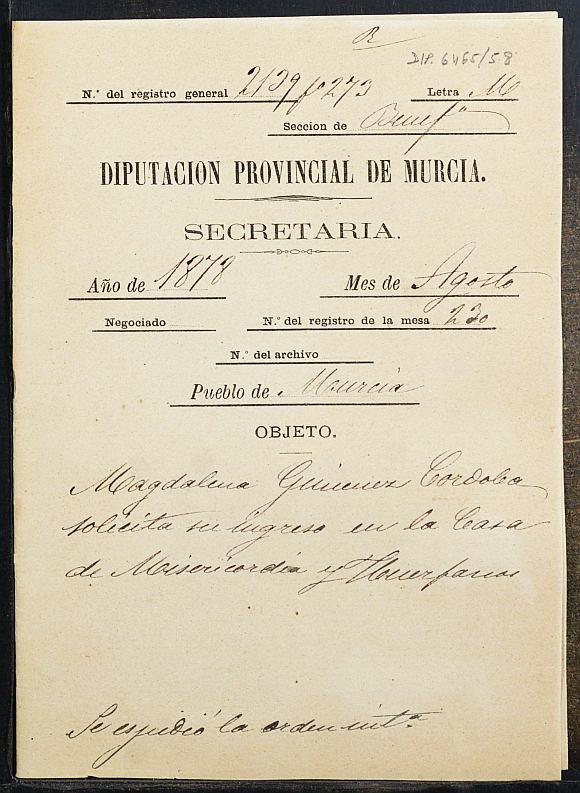 R
DIP. 6465/58
N.º del registro general 2139 fº 273 Letra M
Seccion de Benefª
DIPUTACION PROVINCIAL DE MURCIA.
SECRETARIA.
Año de 1878 Mes de Agosto
Negociado N.º del registro de la mesa 230
N.º del archivo
Pueblo de Murcia
OBJETO.
Magdalena Gimenez Cordoba
solicita su ingreso en la Casa
de Misericordia y Huerfanos
Se espidió la orden intª